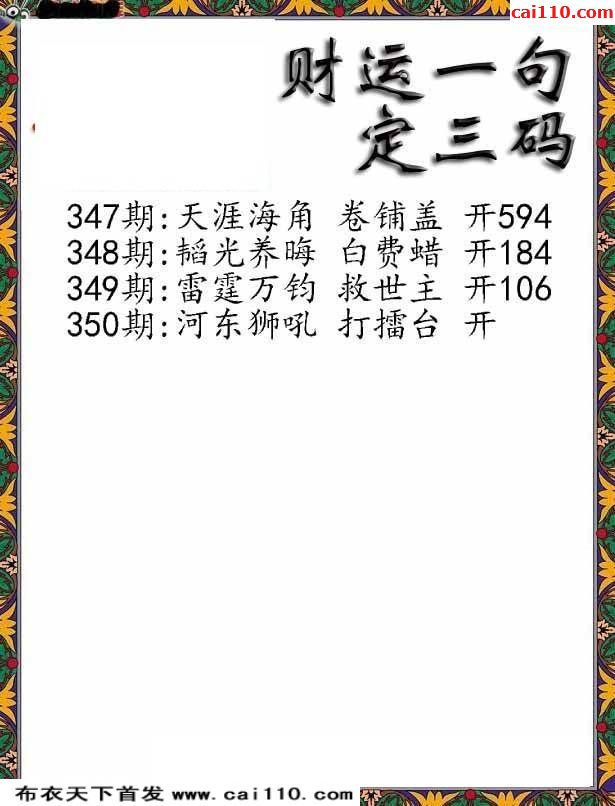 cai110.com
财运一句
定三码
347期:天涯海角 卷铺盖 开594
348期:韬光养晦 白费蜡 开184
349期:雷霆万钧 救世主 开106
350期:河东狮吼 打擂台 开
布衣天下首发 www.cai110.com